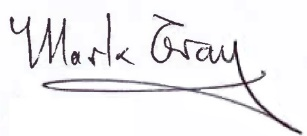 Mark Gray